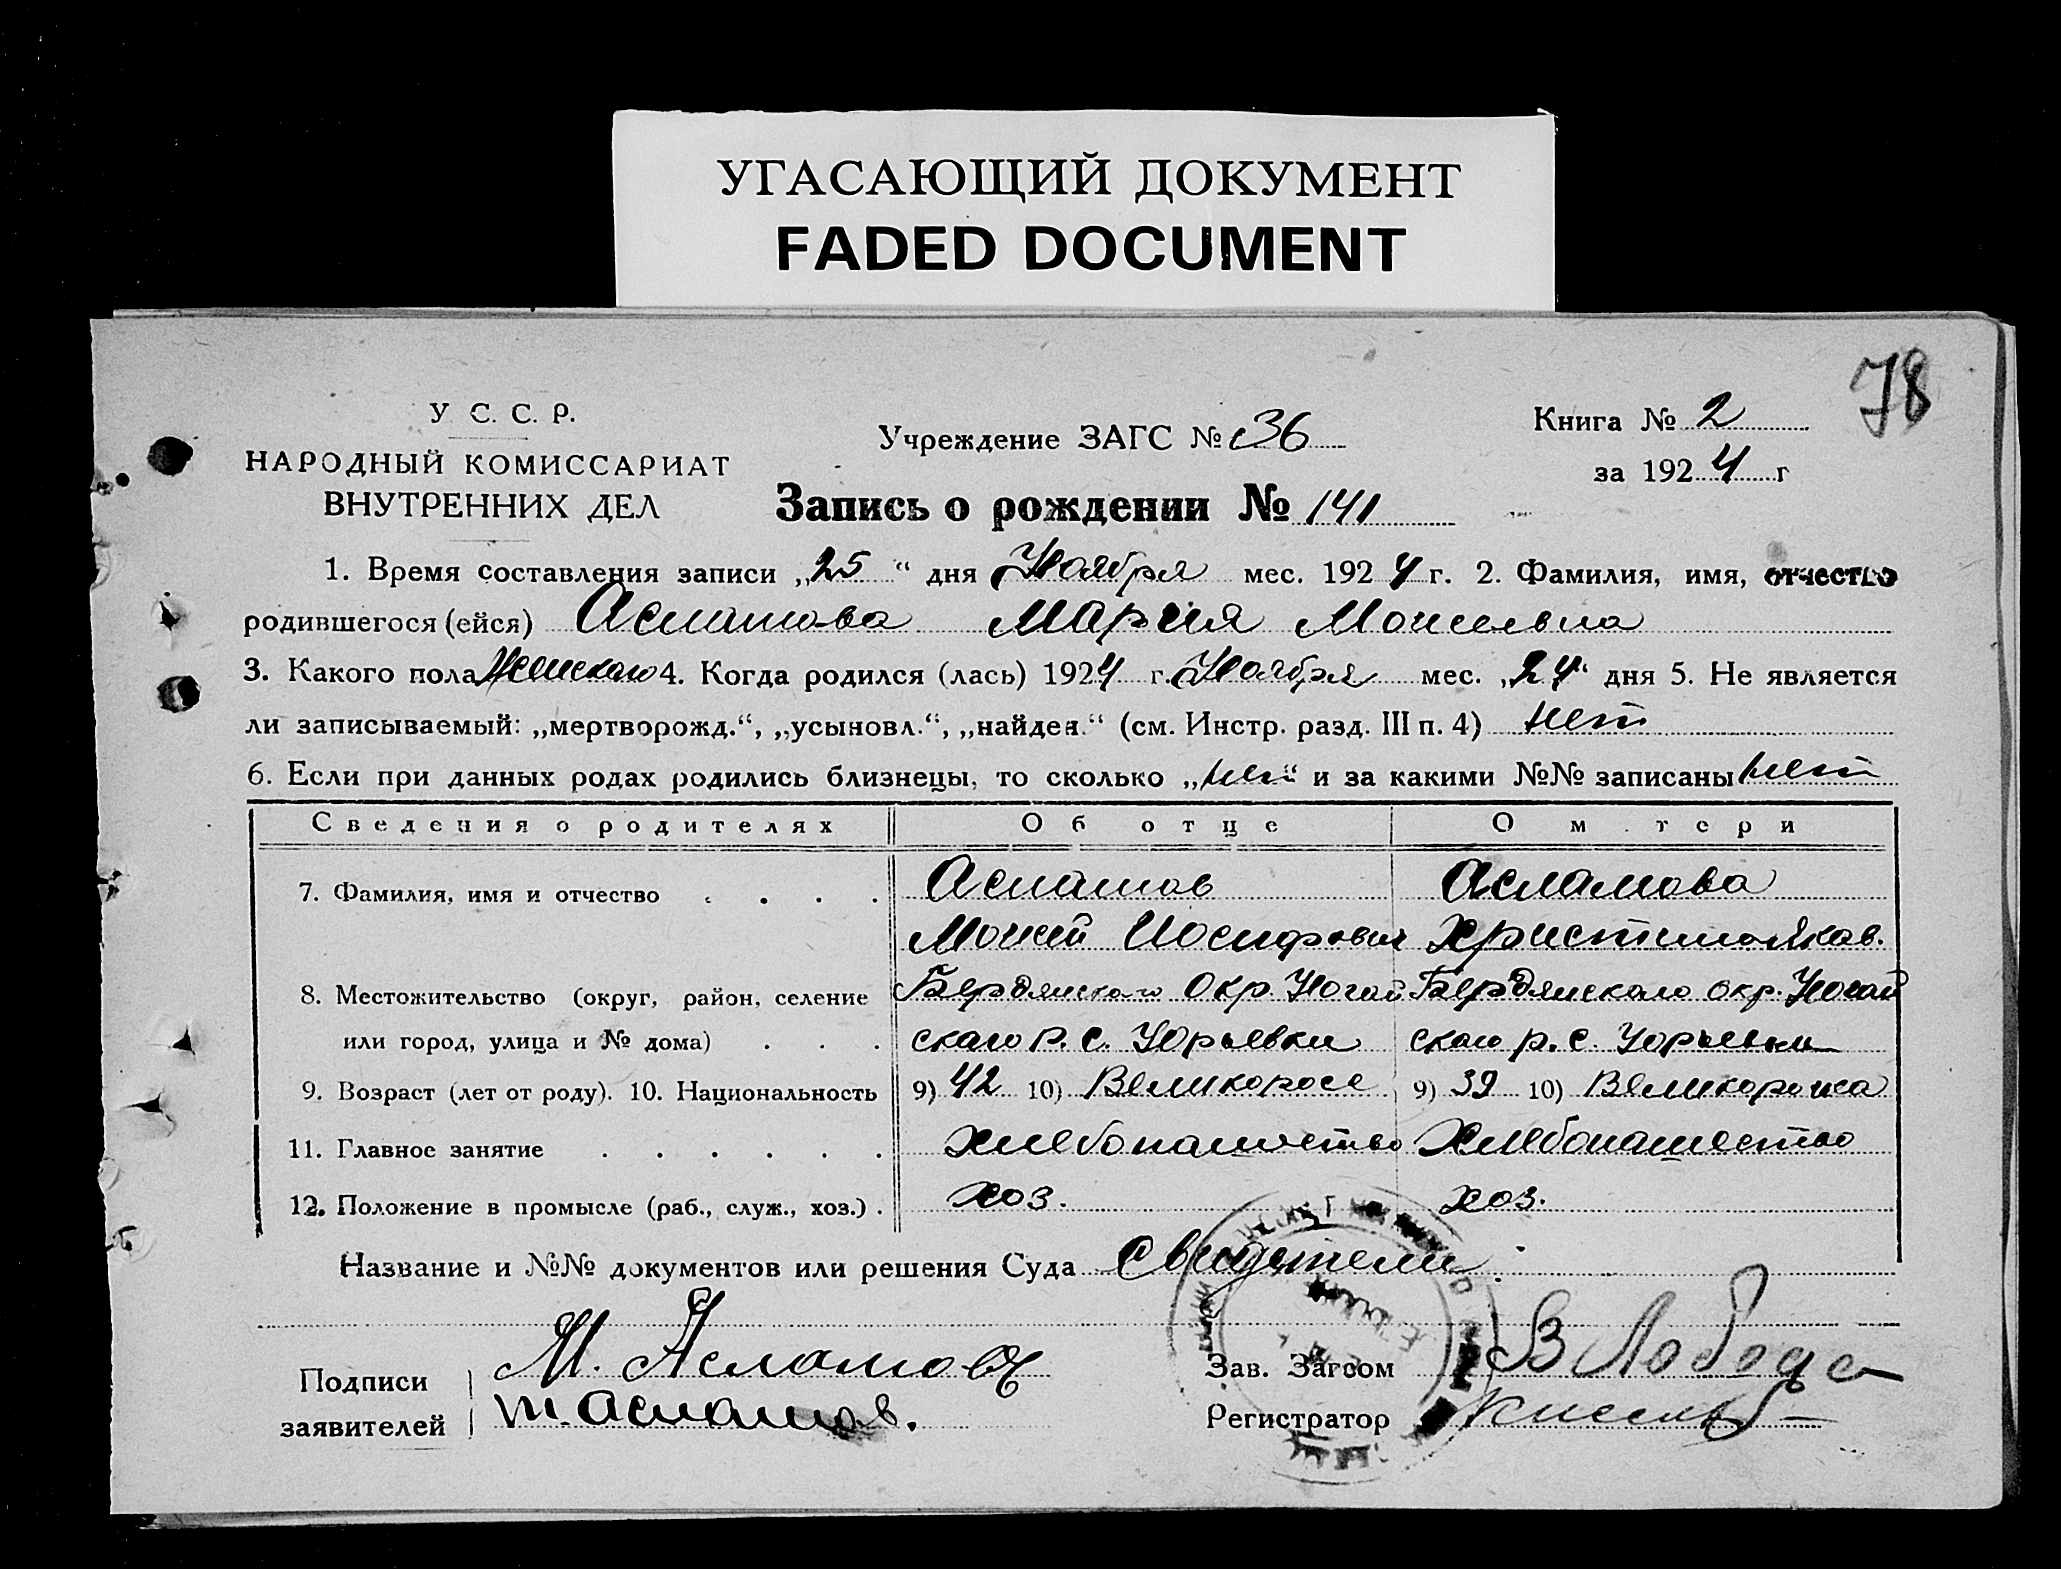 УГАСАЮЩИЙ ДОКУМЕНТ
FADED DOCUMENT
78
У С. С. Р.
НАРОДНЫЙ КОМИССАРИАТ
ВНУТРЕННИХ ДЕЛ
Учреждение ЗАГС № 36
Книга № 2
за 1924 г
Запись о рождении № 141
1. Время составления записи „25“ дня Ноября мес. 1924 г. 2. Фамилия, имя, отчество
родившегося (ейся) Асламова Мария Моисеевна
3. Какого пола Женского 4. Когда родился (лась) 1924 г. Ноября мес. „24“ дня 5. Не является
ли записываемый: „мертворожд.“, „усыновл.“, „найден.“ (см. Инстр. разд. III п. 4) нет
6. Если при данных родах родились близнецы, то сколько „нет“ и за какими №№ записаны нет
Сведения о родителях Об отце О матери
7. Фамилия, имя и отчество . . . . Асламов Асламова
Моисей Иосифович Христина Яков.
8. Местожительство (округ, район, селение Бердянского Окр. Ногай Бердянского окр. Ногай
или город, улица и № дома) . . . ского р. с. Юрьевки ского р. с. Юрьевки
9. Возраст (лет от роду). 10. Национальность 9) 42 10) Великоросс 9) 39 10) Великороска
11. Главное занятие . . . . . . Хлебопашество Хлебопашество
12. Положение в промысле (раб., служ., хоз.) . хоз. хоз.
Название и №№ документов или решения Суда Свидетели:
Подписи
заявителей
М. Асламов
т. асламов.
Зав. Загсом В Лобода
Регистратор